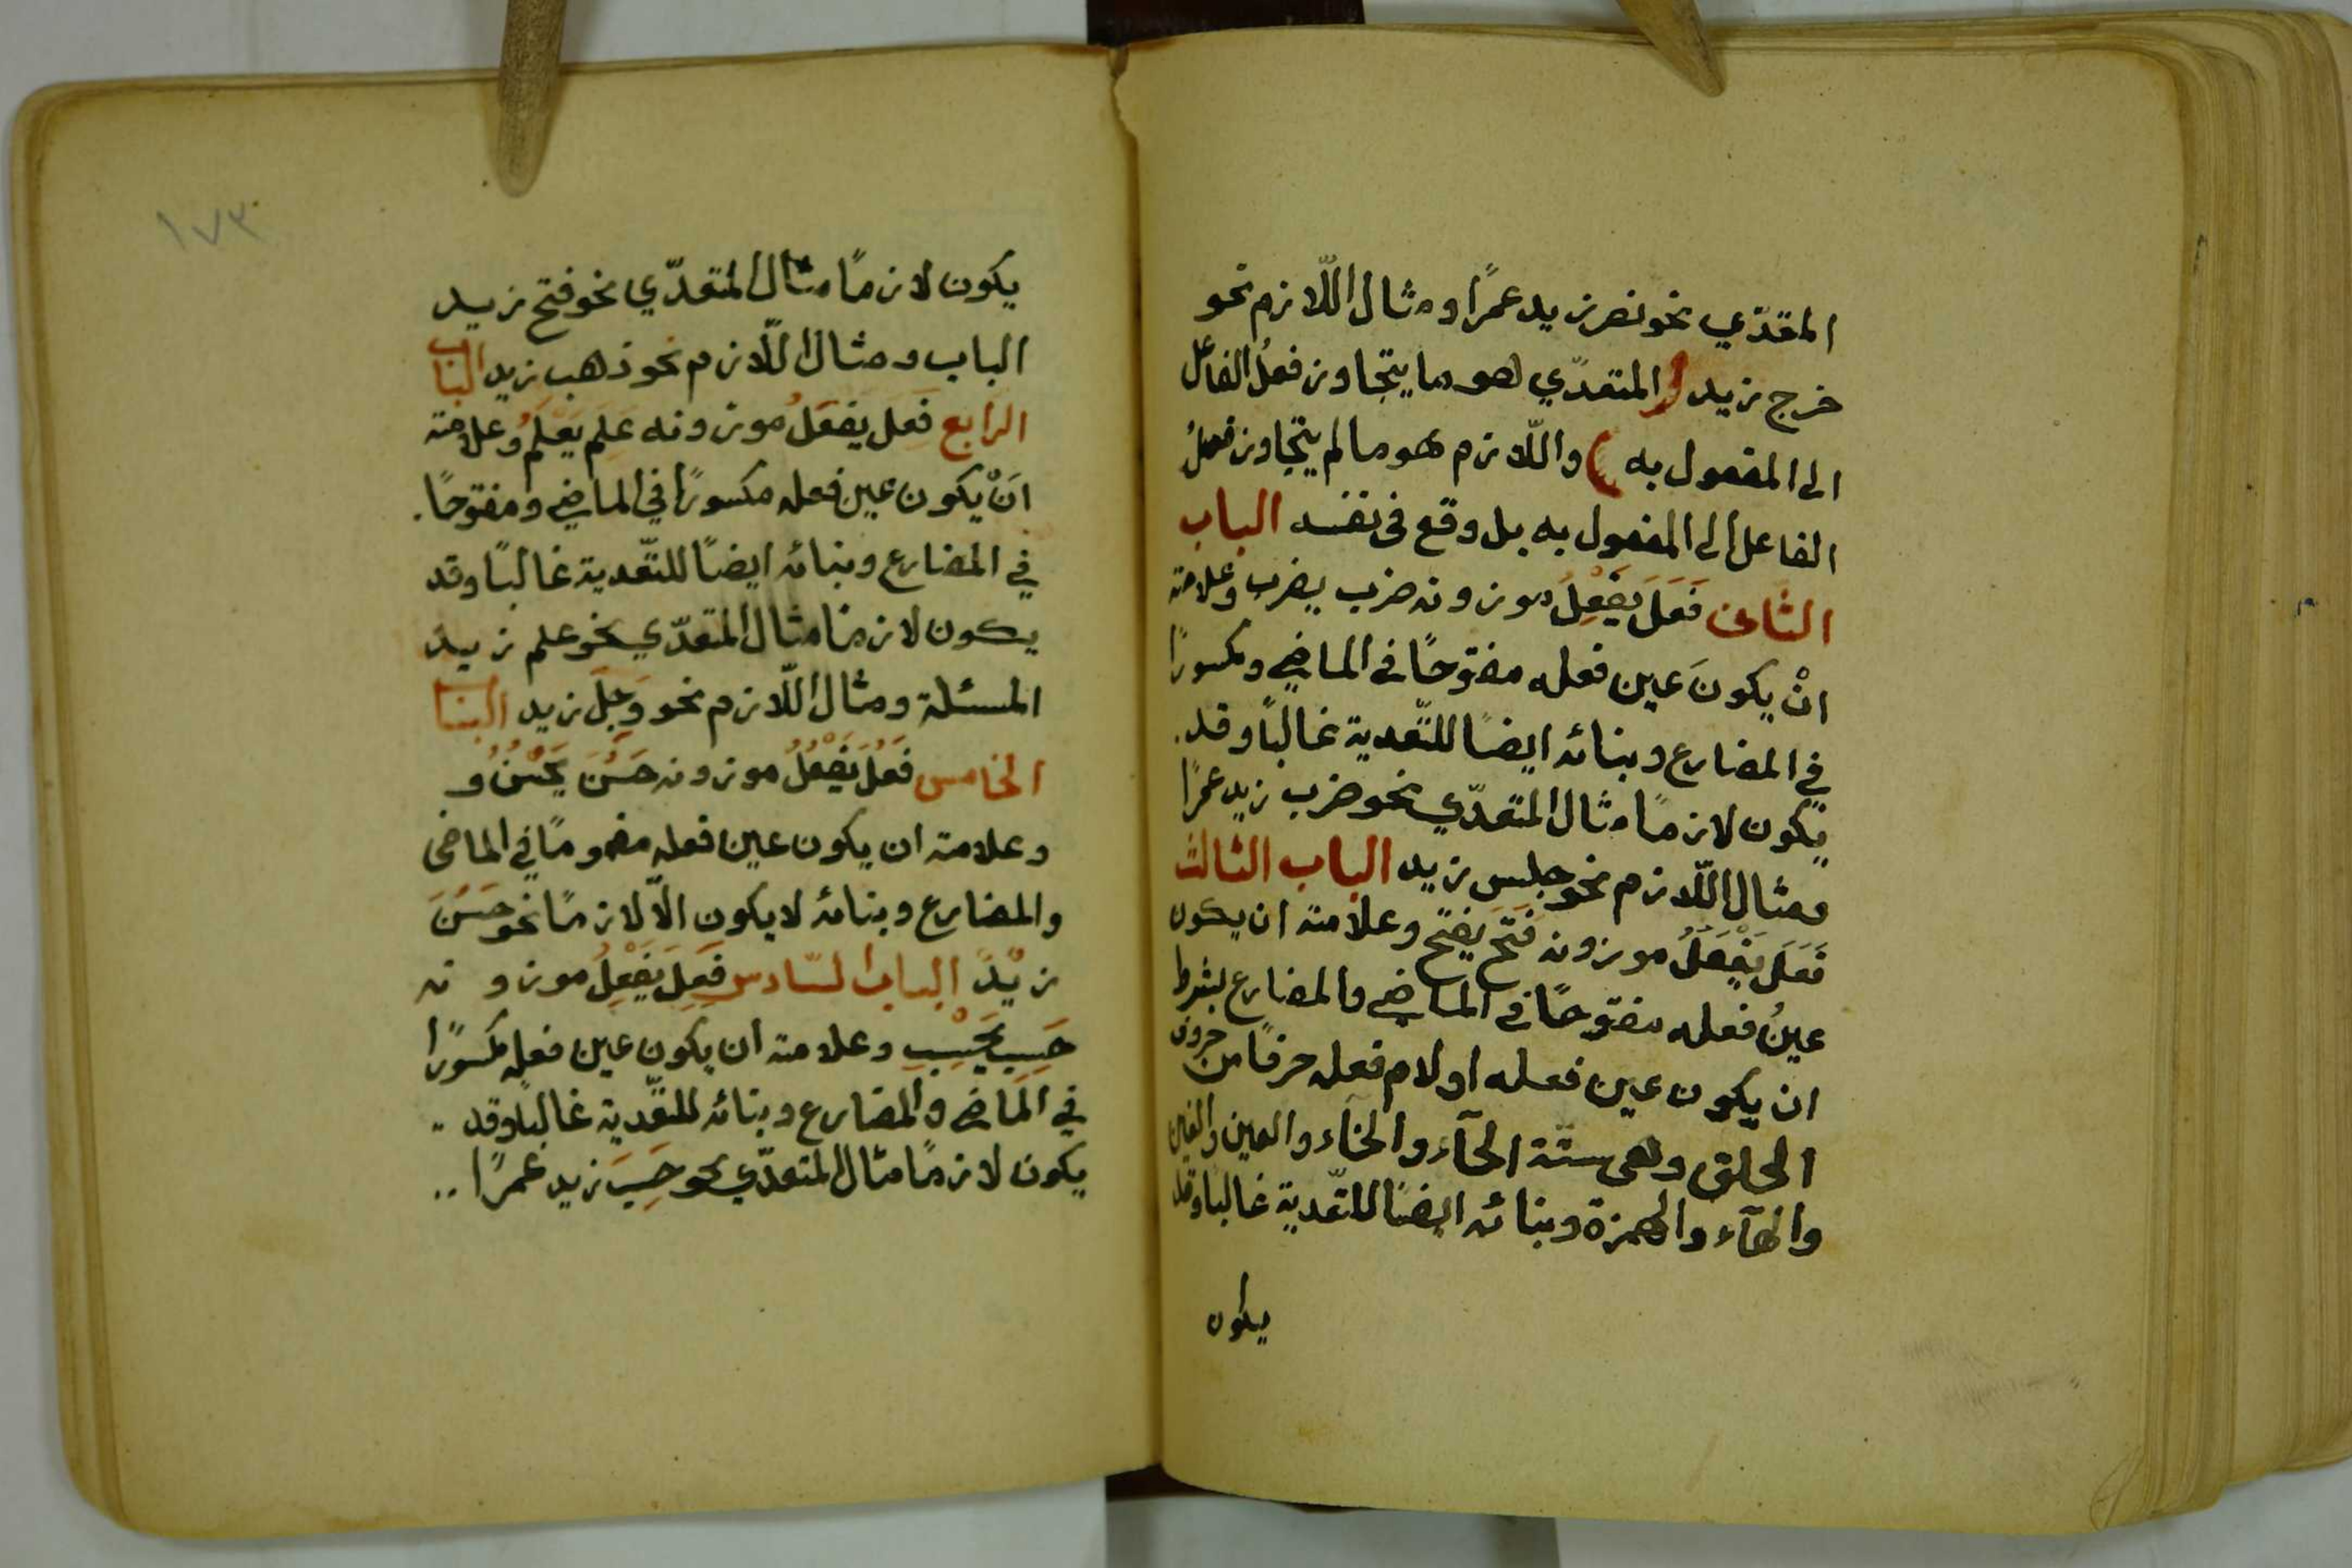 المتعدّي نحو نصر زيد عمرًا ومثال اللّازم نحو
خرج زيد والمتعدّي هو ما يتجاوز فعلُ الفاعل
الى المفعول به واللّازم هو ما لم يتجاوز فعلُ
الفاعل الى المفعول به بل وقع في نفسه الباب
الثّاني فَعَلَ يَفْعِلُ موزونه ضرب يضرب وعلامته
انْ يكونَ عين فعله مفتوحًا في الماضي ومكسورًا
في المضارع وبنائه ايضًا للتّعدية غالبًا وقد
يكون لازمًا مثال المتعدّي نحو ضرب زيد عمرًا
ومثال اللّازم نحو جلس زيد الباب الثالث
فَعَلَ يَفْعَلُ موزونه فَتَحَ يَفتح وعلامته ان يكون
عينُ فعله مفتوحًا في الماضي والمضارع بشرط
ان يكون عين فعله او لام فعله حرفًا من حروف
الحلق وهي ستّة الحآء والخآء والعين والغين
والهآء والهمزة وبنائه ايضًا للتّعدية غالبا وقد
يكون
١٧٣
يكون لازمًا مثال المتعدّي نحو فتح زيد
الباب ومثال اللّازم نحو ذهب زيد الباب
الرّابع فَعِلَ يَفْعَلُ موزونه عَلِمَ يَعْلَمُ وعلامته
انْ يكون عين فعله مكسورًا في الماضي ومفتوحًا
في المضارع وبنائه ايضًا للتّعدية غالبًا وقد
يكون لازمًا مثال المتعدّي نحو علم زيد
المسئلة ومثال اللّازم نحو وَجِلَ زيد الباب
الخامس فَعُلَ يَفْعُلُ موزونه حَسُنَ يَحْسُنُ و
وعلامته ان يكون عين فعله مضمومًا في الماضى
والمضارع وبنائه لا يكون الّا لازمًا نحو حَسُنَ
زيْدٌ الباب السّادس فَعِلَ يَفْعِلُ موزونه
حَسِبَ يَحْسِبُ وعلامته ان يكون عين فعله مكسورًا
في الماضي والمضارع وبنائه للتّعدية غالبًا وقد
يكون لازمًا مثال المتعدّي نحو حَسِبَ زيد عمرًا